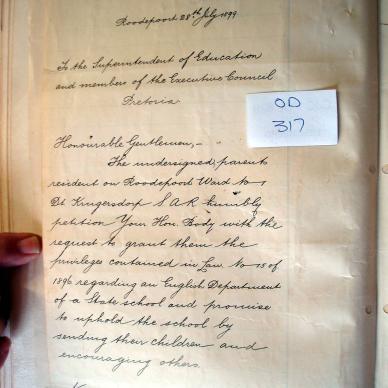 Roodepoort 28th July 1899
To the Superintendent of Education
and members of the Executive Council
Pretoria
OD
317
Honourable Gentlemen,-
The undersigned, parents
resident on Roodepoort Ward No 1
Dt Krugersdorp S A R humbly
petition Your Hon. Body with the
request to grant them the
privileges contained in Law No 15 of
1896 regarding an English Department
of a State school and promise
to uphold the school by
sending their children and
encouraging others.